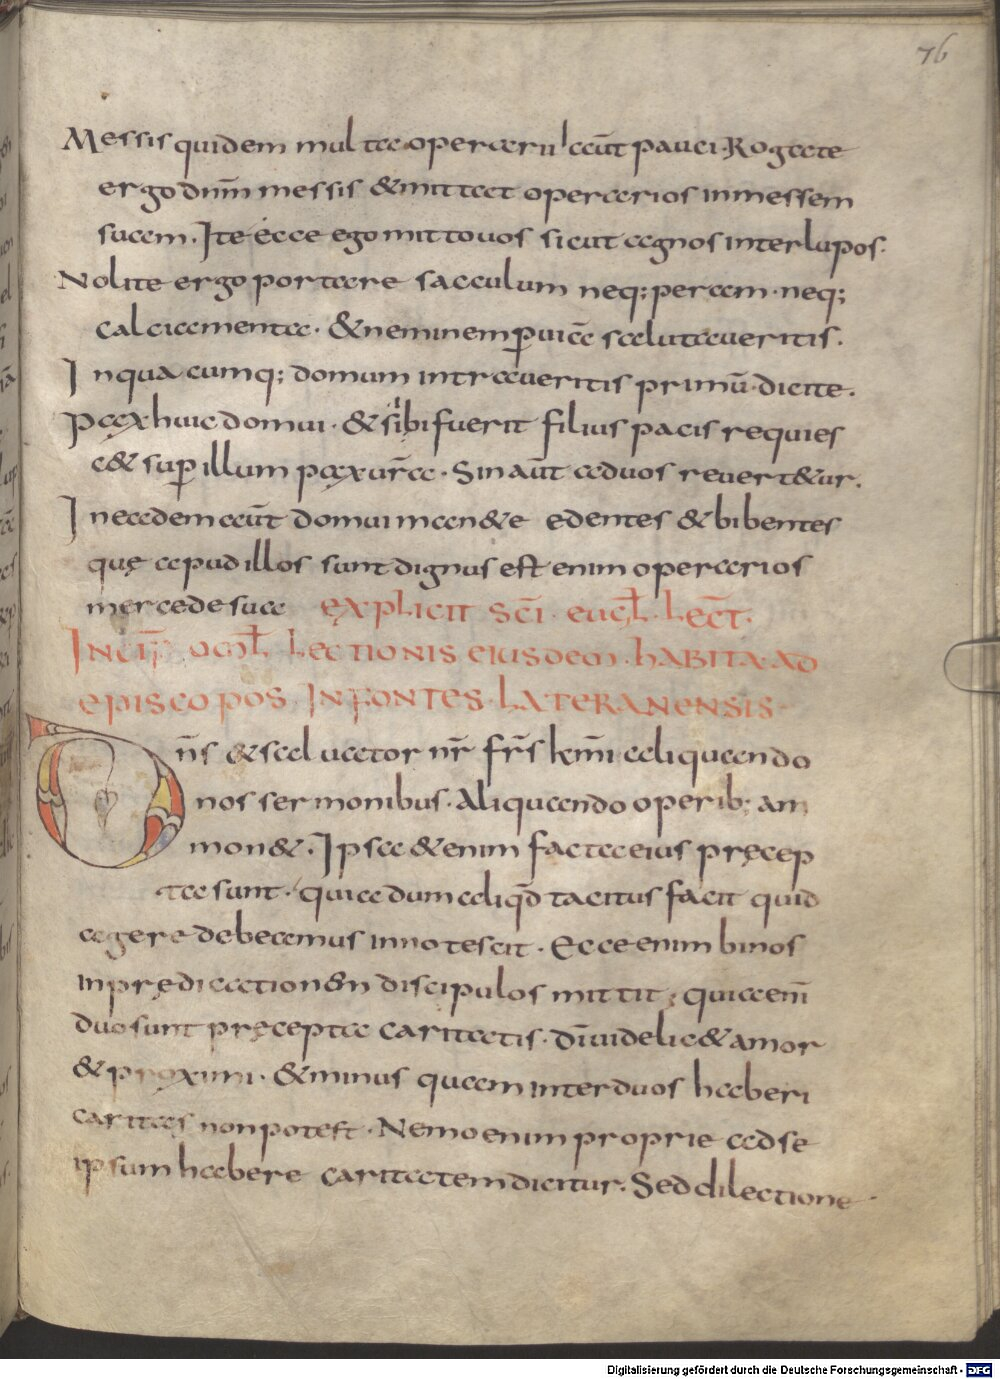 76
Messis quidem multa operarii aūt pauci. Rogate
ergo dn̄m messis & mittat operarios in messem
suam. Ite ecce ego mitto uos sicut agnos inter lupos.
Nolite ergo portare sacculum neq; peram. neq;
calciamenta. & neminem ꝑ uiā salutaueritis.
In qua cumq; domum intraueritis primū. dicite.
Pax huic domui. & si ibi fuerit filius pacis requies
c& suꝑ illum pax ur̄a. Sin aūt ad uos reuert&ur.
In eadem aūt domui man&e edentes & bibentes
quę apud illos sunt dignus est enim operarios
mercede sua explicit sc̄i. eugl̄. lect̄.
Incip̄ oml̄ lectionis eiusdem. habita ad
episcopos. In fontes. lateranensis.
Dn̄s & saluator nr̄ fr̄s km̄i aliquando
nos sermonibus. Aliquando operib; am
mon&. Ipsa &enim facta eius pręcep
ta sunt. quia dum aliq̄d tacitus facit quid
agere debeamus innotescit. Ecce enim binos
in prędicationem discipulos mittit; quia em̄
duo sunt pręcepta caritatis. dī uidelic& amor
& proximi. & minus quam inter duos haberi
caritas non potest. Nemo enim proprie ad se
ipsum habere caritatem dicitur. Sed dilectione
Digitalisierung gefördert durch die Deutsche Forschungsgemeinschaft - DFG